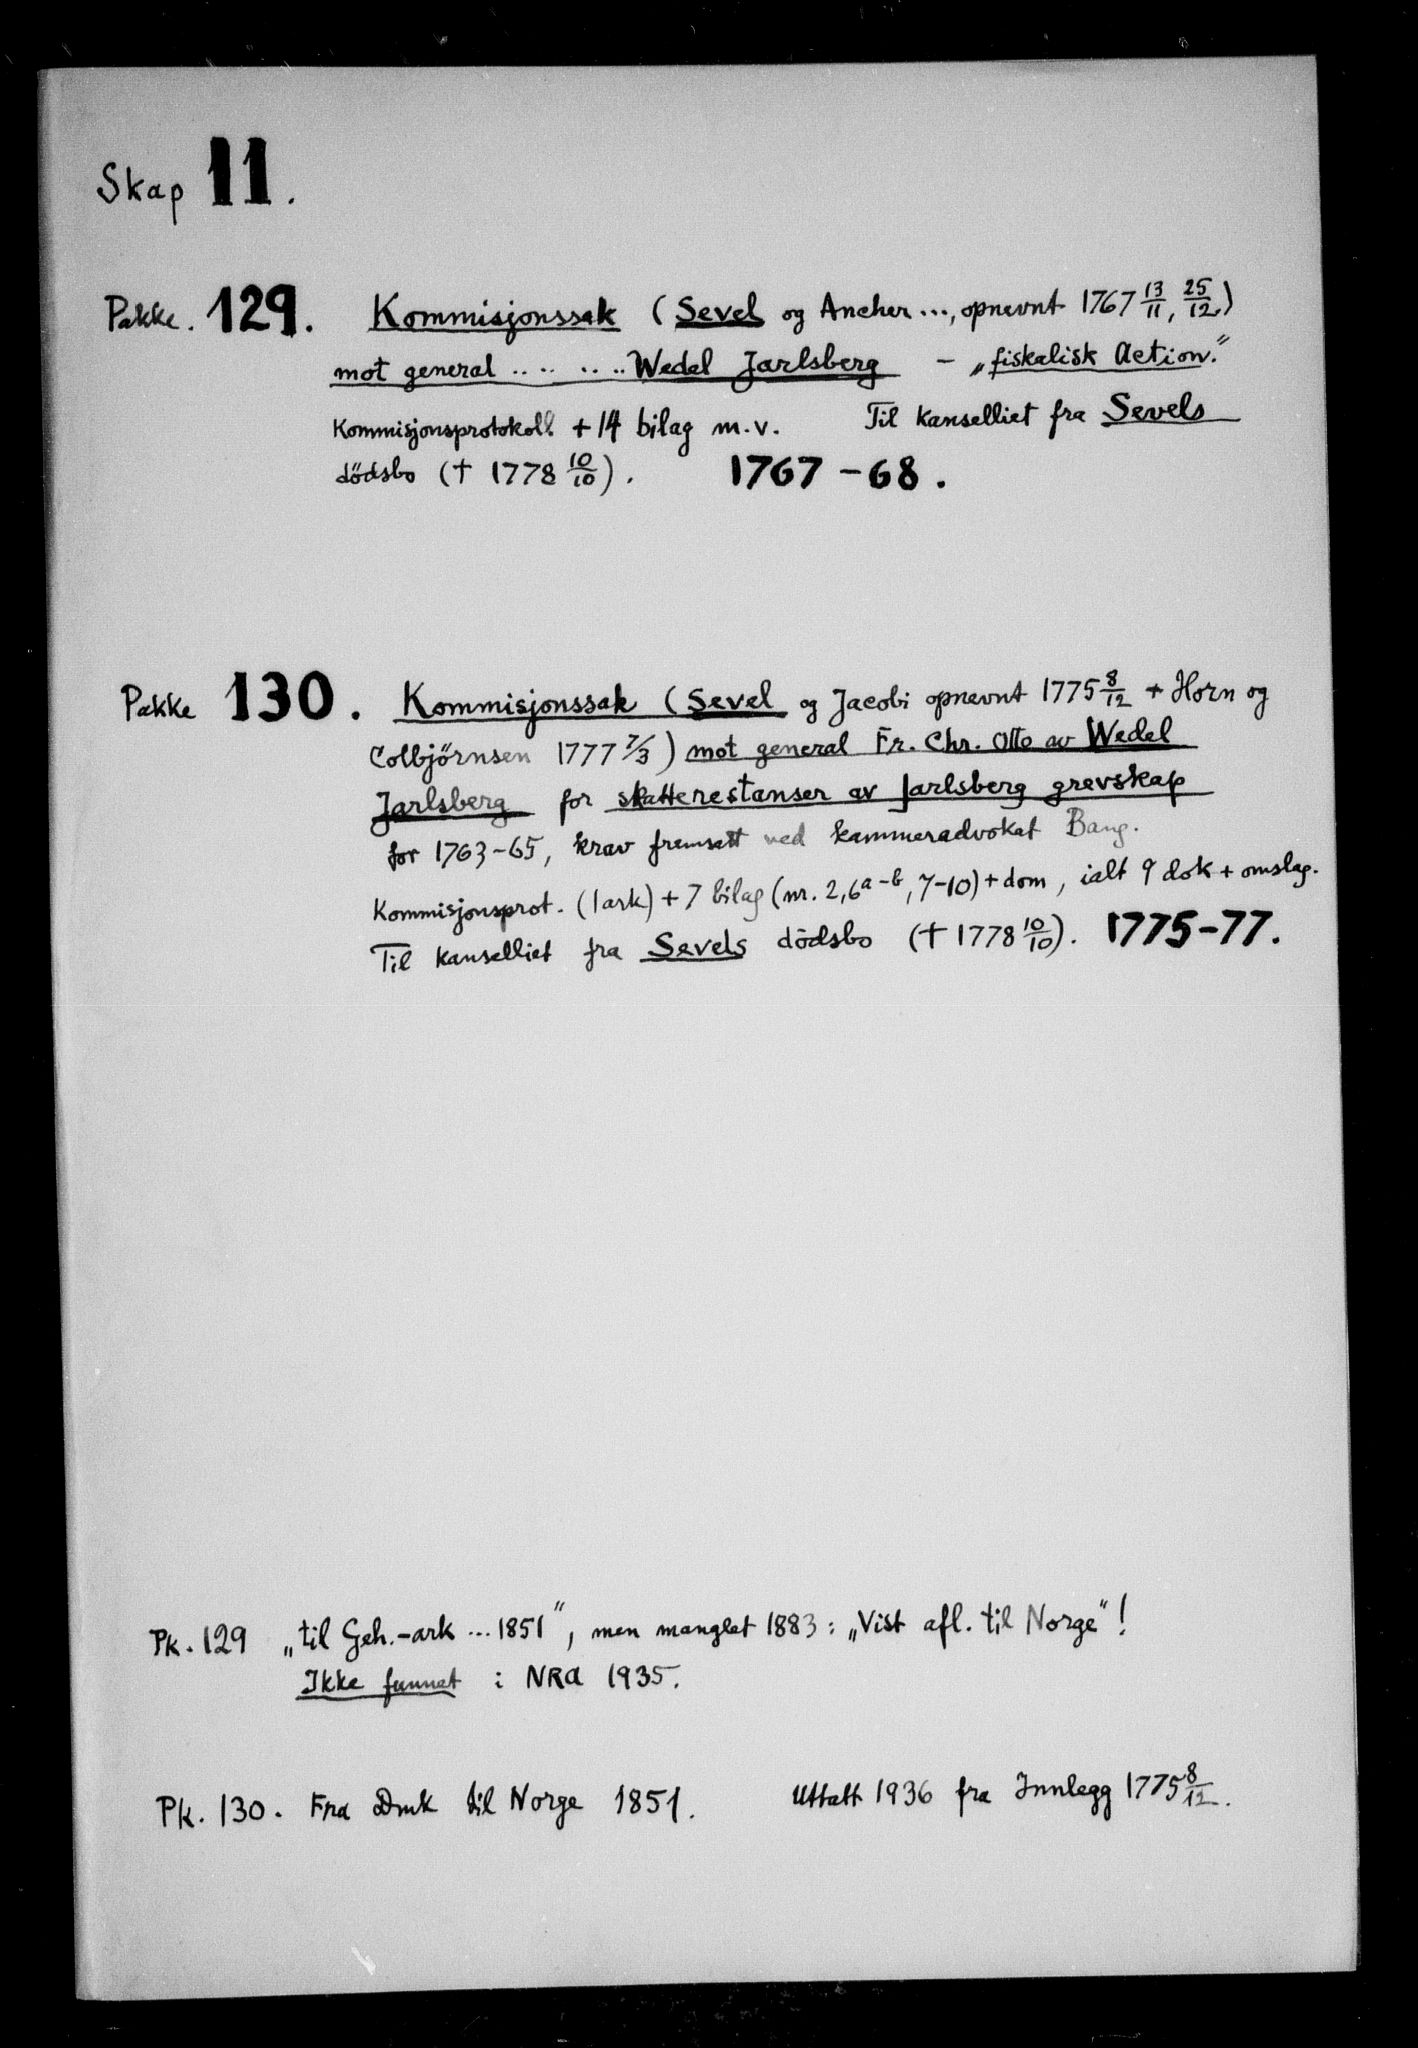 Skap 11.
Pakke. 129. Kommisjonssak (Sevel og Ancher ..., opnevnt 1767 13/11, 25/12)
mot general .. .. .. .. Wedel Jarlsberg - „fiskalisk Action."
Kommisjonsprotokoll + 14 bilag m.v. Til kanselliet fra Sevels
dödsbo († 1778 10/10). 1767-68.
Pakke 130. Kommisjonssak (Sevel og Jacobi opnevnt 1775 8/12 + Horn og
Colbjörnsen 1777 7/3) mot general Fr. Chr. Otto av Wedel
Jarlsberg for skatterestanser av Jarlsberg grevskap
for 1763-65, krav fremsatt ved kammeradvokat Bang.
Kommisjonsprot. (1 ark) + 7 bilag (nr. 2, 6a-b, 7-10) + dom, ialt 9 dok + omslag.
Til kanselliet fra Sevels dödsbo († 1778 10/10). 1775-77.
Pk. 129 „til Geh.-ark ... 1851", men manglet 1883: „Vist afl. til Norge"!
Ikke funnet i NRA 1935.
Pk. 130. Fra Dmk til Norge 1851. Uttatt 1936 fra Innlegg 1775 8/12.